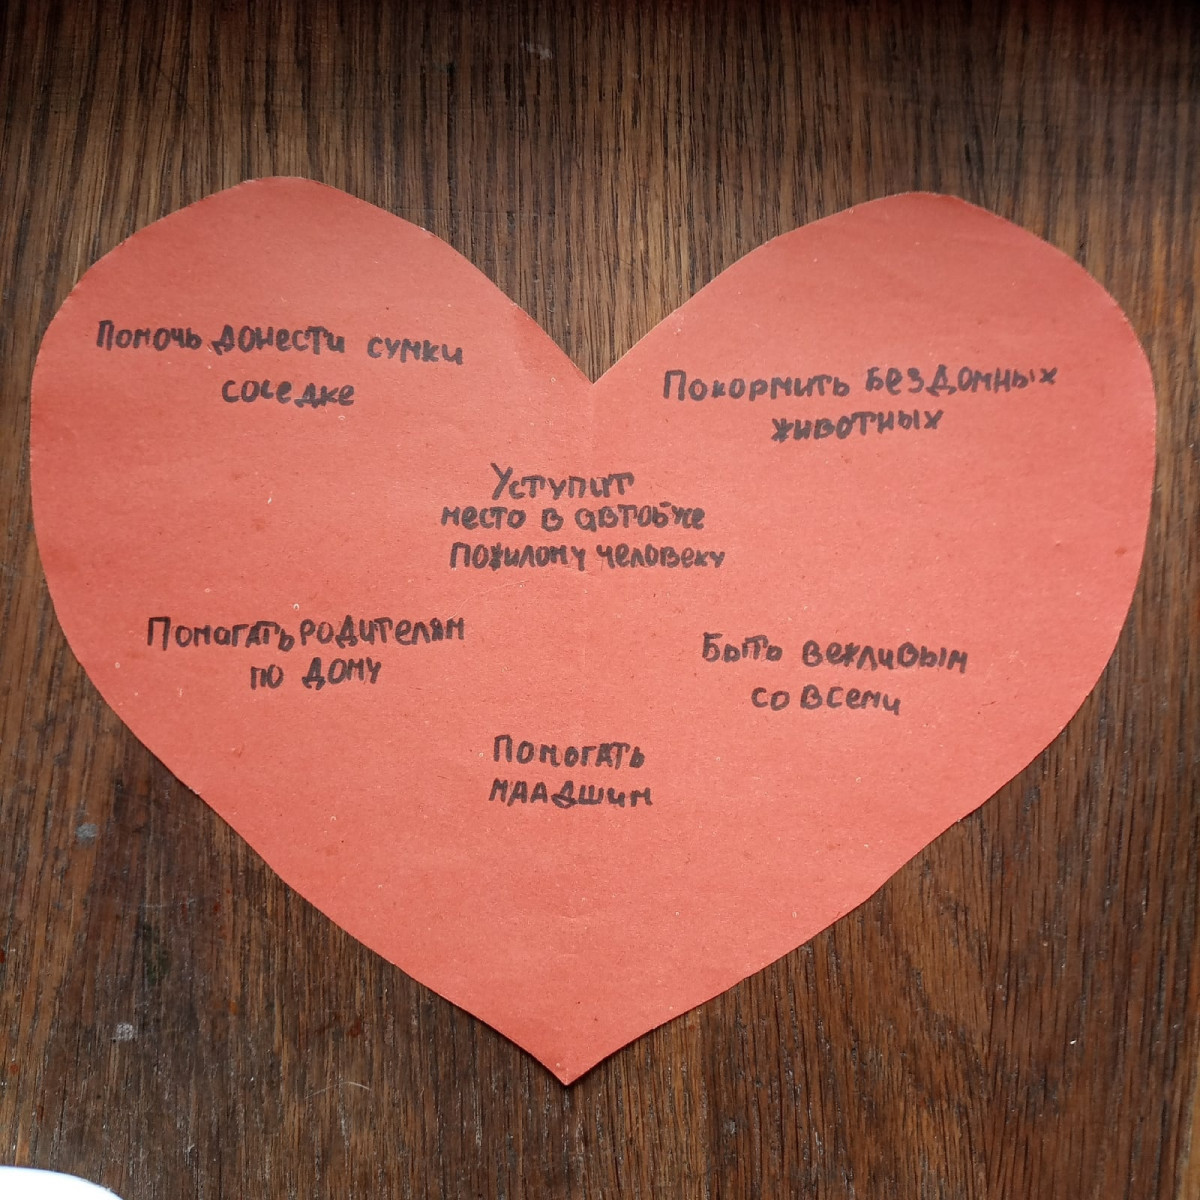 Помочь донести сумки
соседке
Покормить бездомных
животных
Уступит
место в автобусе
пожилому человеку
Помогать родителям
по дому
Быть вежливым
со всеми
Помогать
младшим